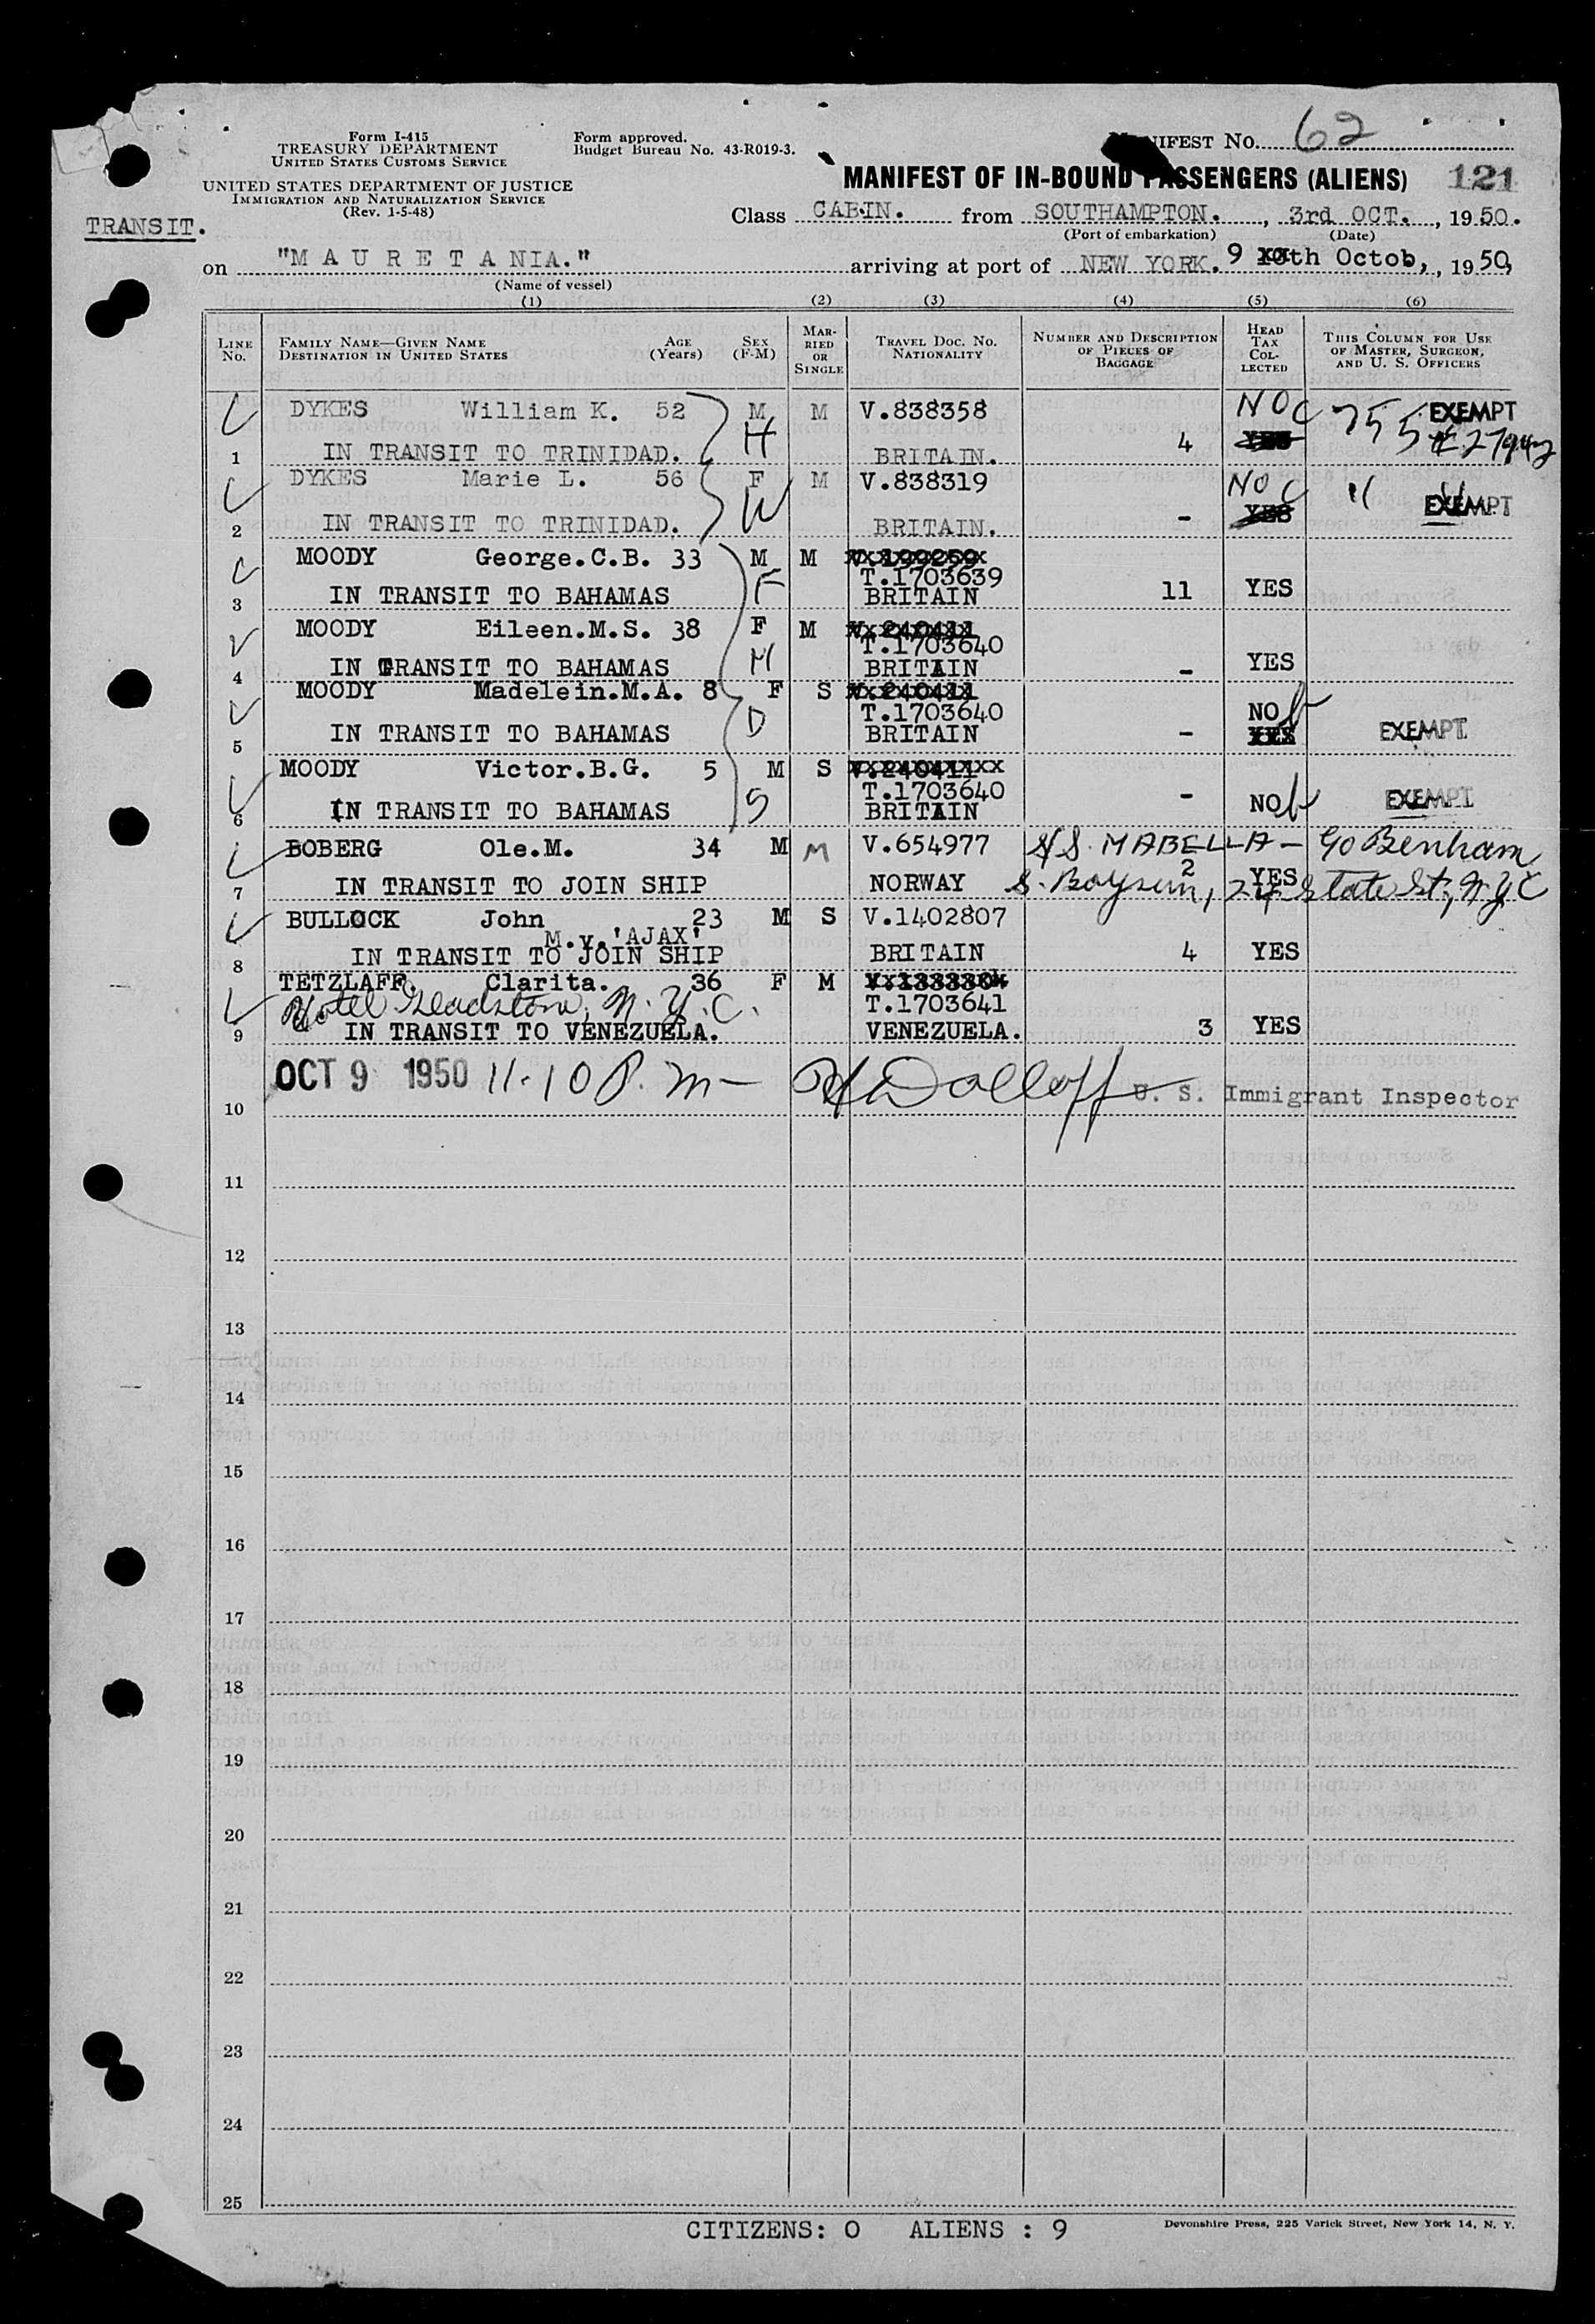 Form I-415
TREASURY DEPARTMENT
UNITED STATES CUSTOMS SERVICE
UNITED STATES DEPARTMENT OF JUSTICE
IMMIGRATION AND NATURALIZATION SERVICE
(Rev. 1-5-48)
Form approved.
Budget Bureau No. 43-R019-3.
MANIFEST No. 62
MANIFEST OF IN-BOUND PASSENGERS (ALIENS) 121
TRANSIT.
Class CABIN. from SOUTHAMPTON. , 3rd OCT. , 1950.
(Port of embarkation) (Date)
on "M A U R E T A NIA." arriving at port of NEW YORK. 9 th Octob, , 1950,
(Name of vessel)
(1) (2) (3) (4) (5) (6)
LINE No. FAMILY NAME—GIVEN NAME DESTINATION IN UNITED STATES AGE (Years) SEX (F-M) MARRIED OR SINGLE TRAVEL DOC. No. NATIONALITY NUMBER AND DESCRIPTION OF PIECES OF BAGGAGE HEAD TAX COLLECTED THIS COLUMN FOR USE OF MASTER, SURGEON, AND U. S. OFFICERS
DYKES William K. 52 M M V.838358 NO C 755 EXEMPT
1 IN TRANSIT TO TRINIDAD. H BRITAIN. 4 YES
DYKES Marie L. 56 F M V.838319 NO C " "
2 IN TRANSIT TO TRINIDAD. W BRITAIN. - YES EXEMPT
MOODY George.C.B. 33 M M V.199259
F T.1703639
3 IN TRANSIT TO BAHAMAS BRITAIN 11 YES
MOODY Eileen.M.S. 38 F M V.240411
M T.1703640
4 IN TRANSIT TO BAHAMAS BRITAIN - YES
MOODY Madelein.M.A. 8 F S V.240411
D T.1703640 NO
5 IN TRANSIT TO BAHAMAS BRITAIN - YES EXEMPT
MOODY Victor.B.G. 5 M S V.240411
S T.1703640
6 IN TRANSIT TO BAHAMAS BRITAIN - NO EXEMPT
BOBERG Ole.M. 34 M M V.654977 S/S. MABELLA - c/o Benham
7 IN TRANSIT TO JOIN SHIP NORWAY 2 YES & Boysen, 24 State St, N.Y.C
BULLOCK John 23 M S V.1402807
M.v.'AJAX'
8 IN TRANSIT TO JOIN SHIP BRITAIN 4 YES
TETZLAFF. Clarita. 36 F M
Hotel Gladstone, N.Y.C. T.1703641
9 IN TRANSIT TO VENEZUELA. VENEZUELA. 3 YES
OCT 9 1950 11.10 P.m- Dolloff U. S. Immigrant Inspector
10
11
12
13
14
15
16
17
18
19
20
21
22
23
24
25
CITIZENS: O ALIENS : 9
Devonshire Press, 225 Varick Street, New York 14, N. Y.